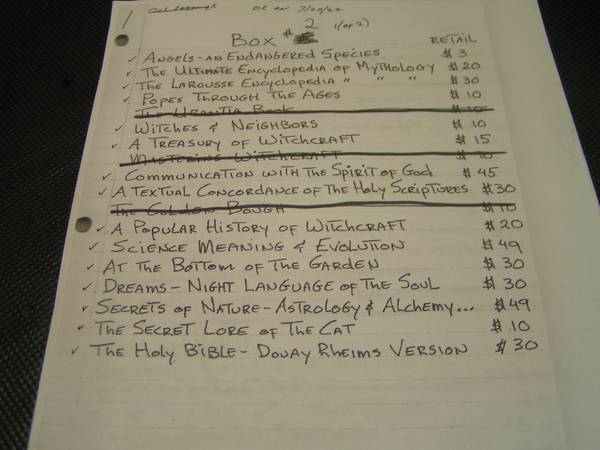 OK on 7/29/22
Box # 2 1(of 2)
RETAIL
✓ Angels-an Endangered Species $3
✓ The Ultimate Encyclopedia of Mythology $20
✓ The Larousse Encyclopedia " " " $30
✓ Popes Through The Ages $10
The Urantia Book $10
✓ Witches & Neighbors $10
✓ A Treasury of Witchcraft $15
Mastering Witchcraft $10
✓ Communication with the Spirit of God $45
✓ A Textual Concordance of the Holy Scriptures $30
The Golden Bough $10
✓ A Popular History of Witchcraft $20
✓ Science Meaning & Evolution $49
✓ At The Bottom of The Garden $30
✓ Dreams - Night Language of the Soul $30
✓ Secrets of Nature - Astrology & Alchemy... $49
✓ The Secret Lore of The Cat $10
✓ The Holy Bible - Douay Rheims Version $30